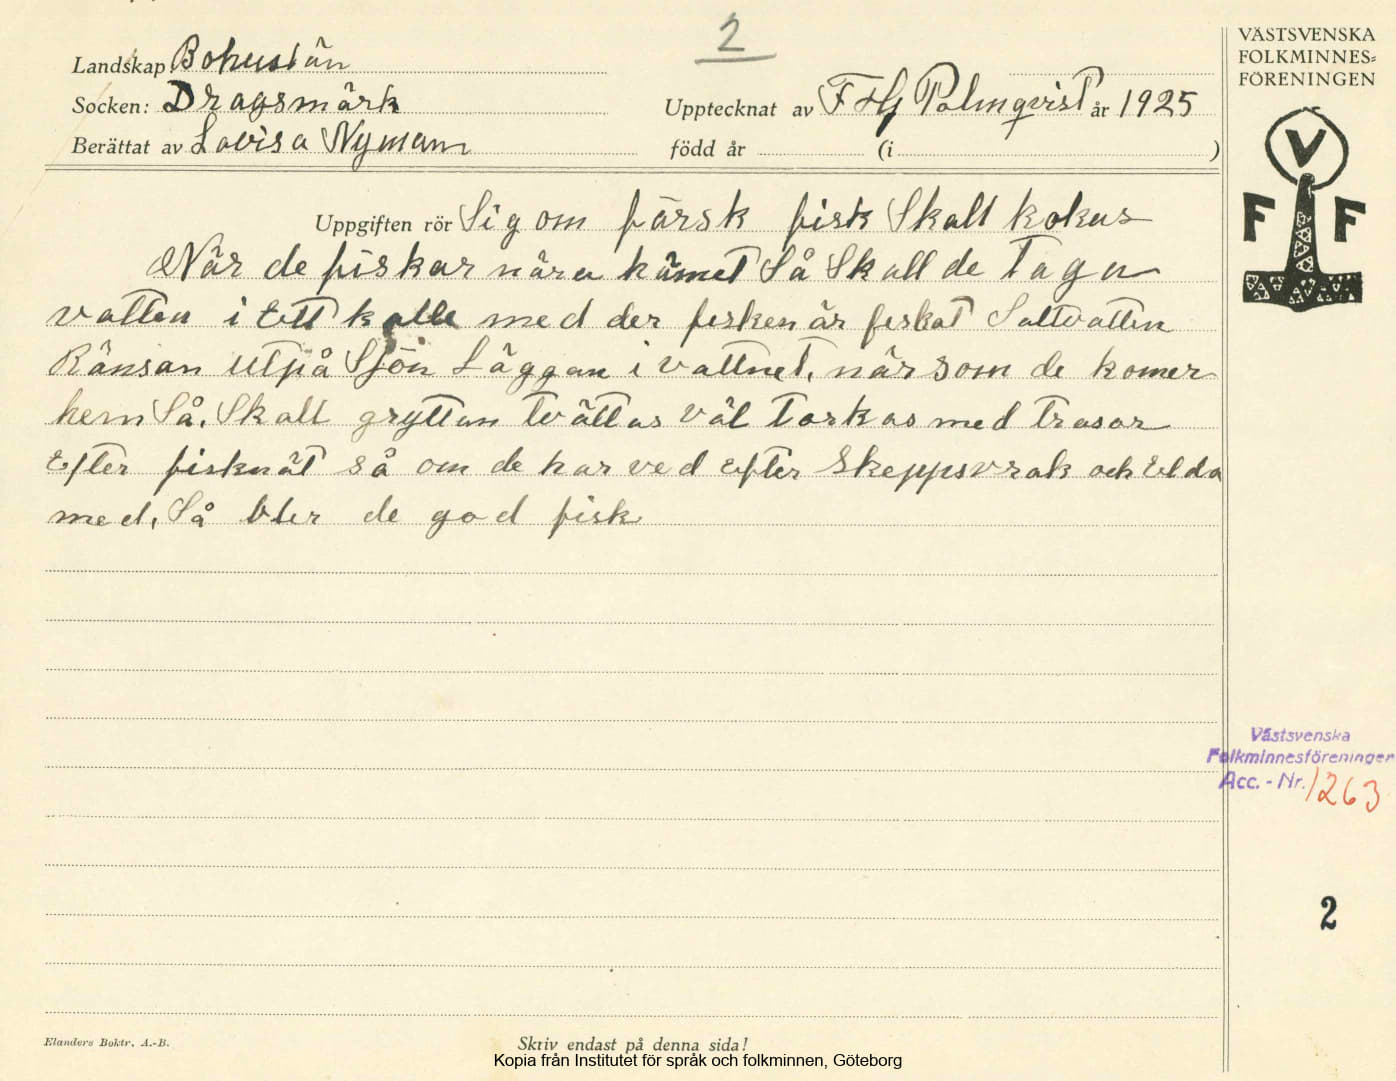 2
VÄSTSVENSKA
FOLKMINNES=
FÖRENINGEN
Landskap Bohuslän
Socken: Dragsmärk
Upptecknat av F Hj Palmqvist år 1925
Berättat av Lovisa Nyman
född år (i )
V
F F
Uppgiften rör Sig om färsk fisk Skall kokas
När de fiskar nära Så Skall de Taga
vatten i Ett kalle med der fisken är fiskat Saltvatten
Ränsan utpå Sjön Läggan i vattnet, när som de komer
hem Så, Skall gryttan tvättas väl Torkas med trasor
Efter fisknät så om de har ved Efter Skeppsvrak och Elda
med, Så bler de god fisk
Västsvenska
Folkminnesföreningen
Acc. - Nr. 1263
2
Elanders Boktr. A.-B.
Skriv endast på denna sida!
Kopia från Institutet för språk och folkminnen, Göteborg